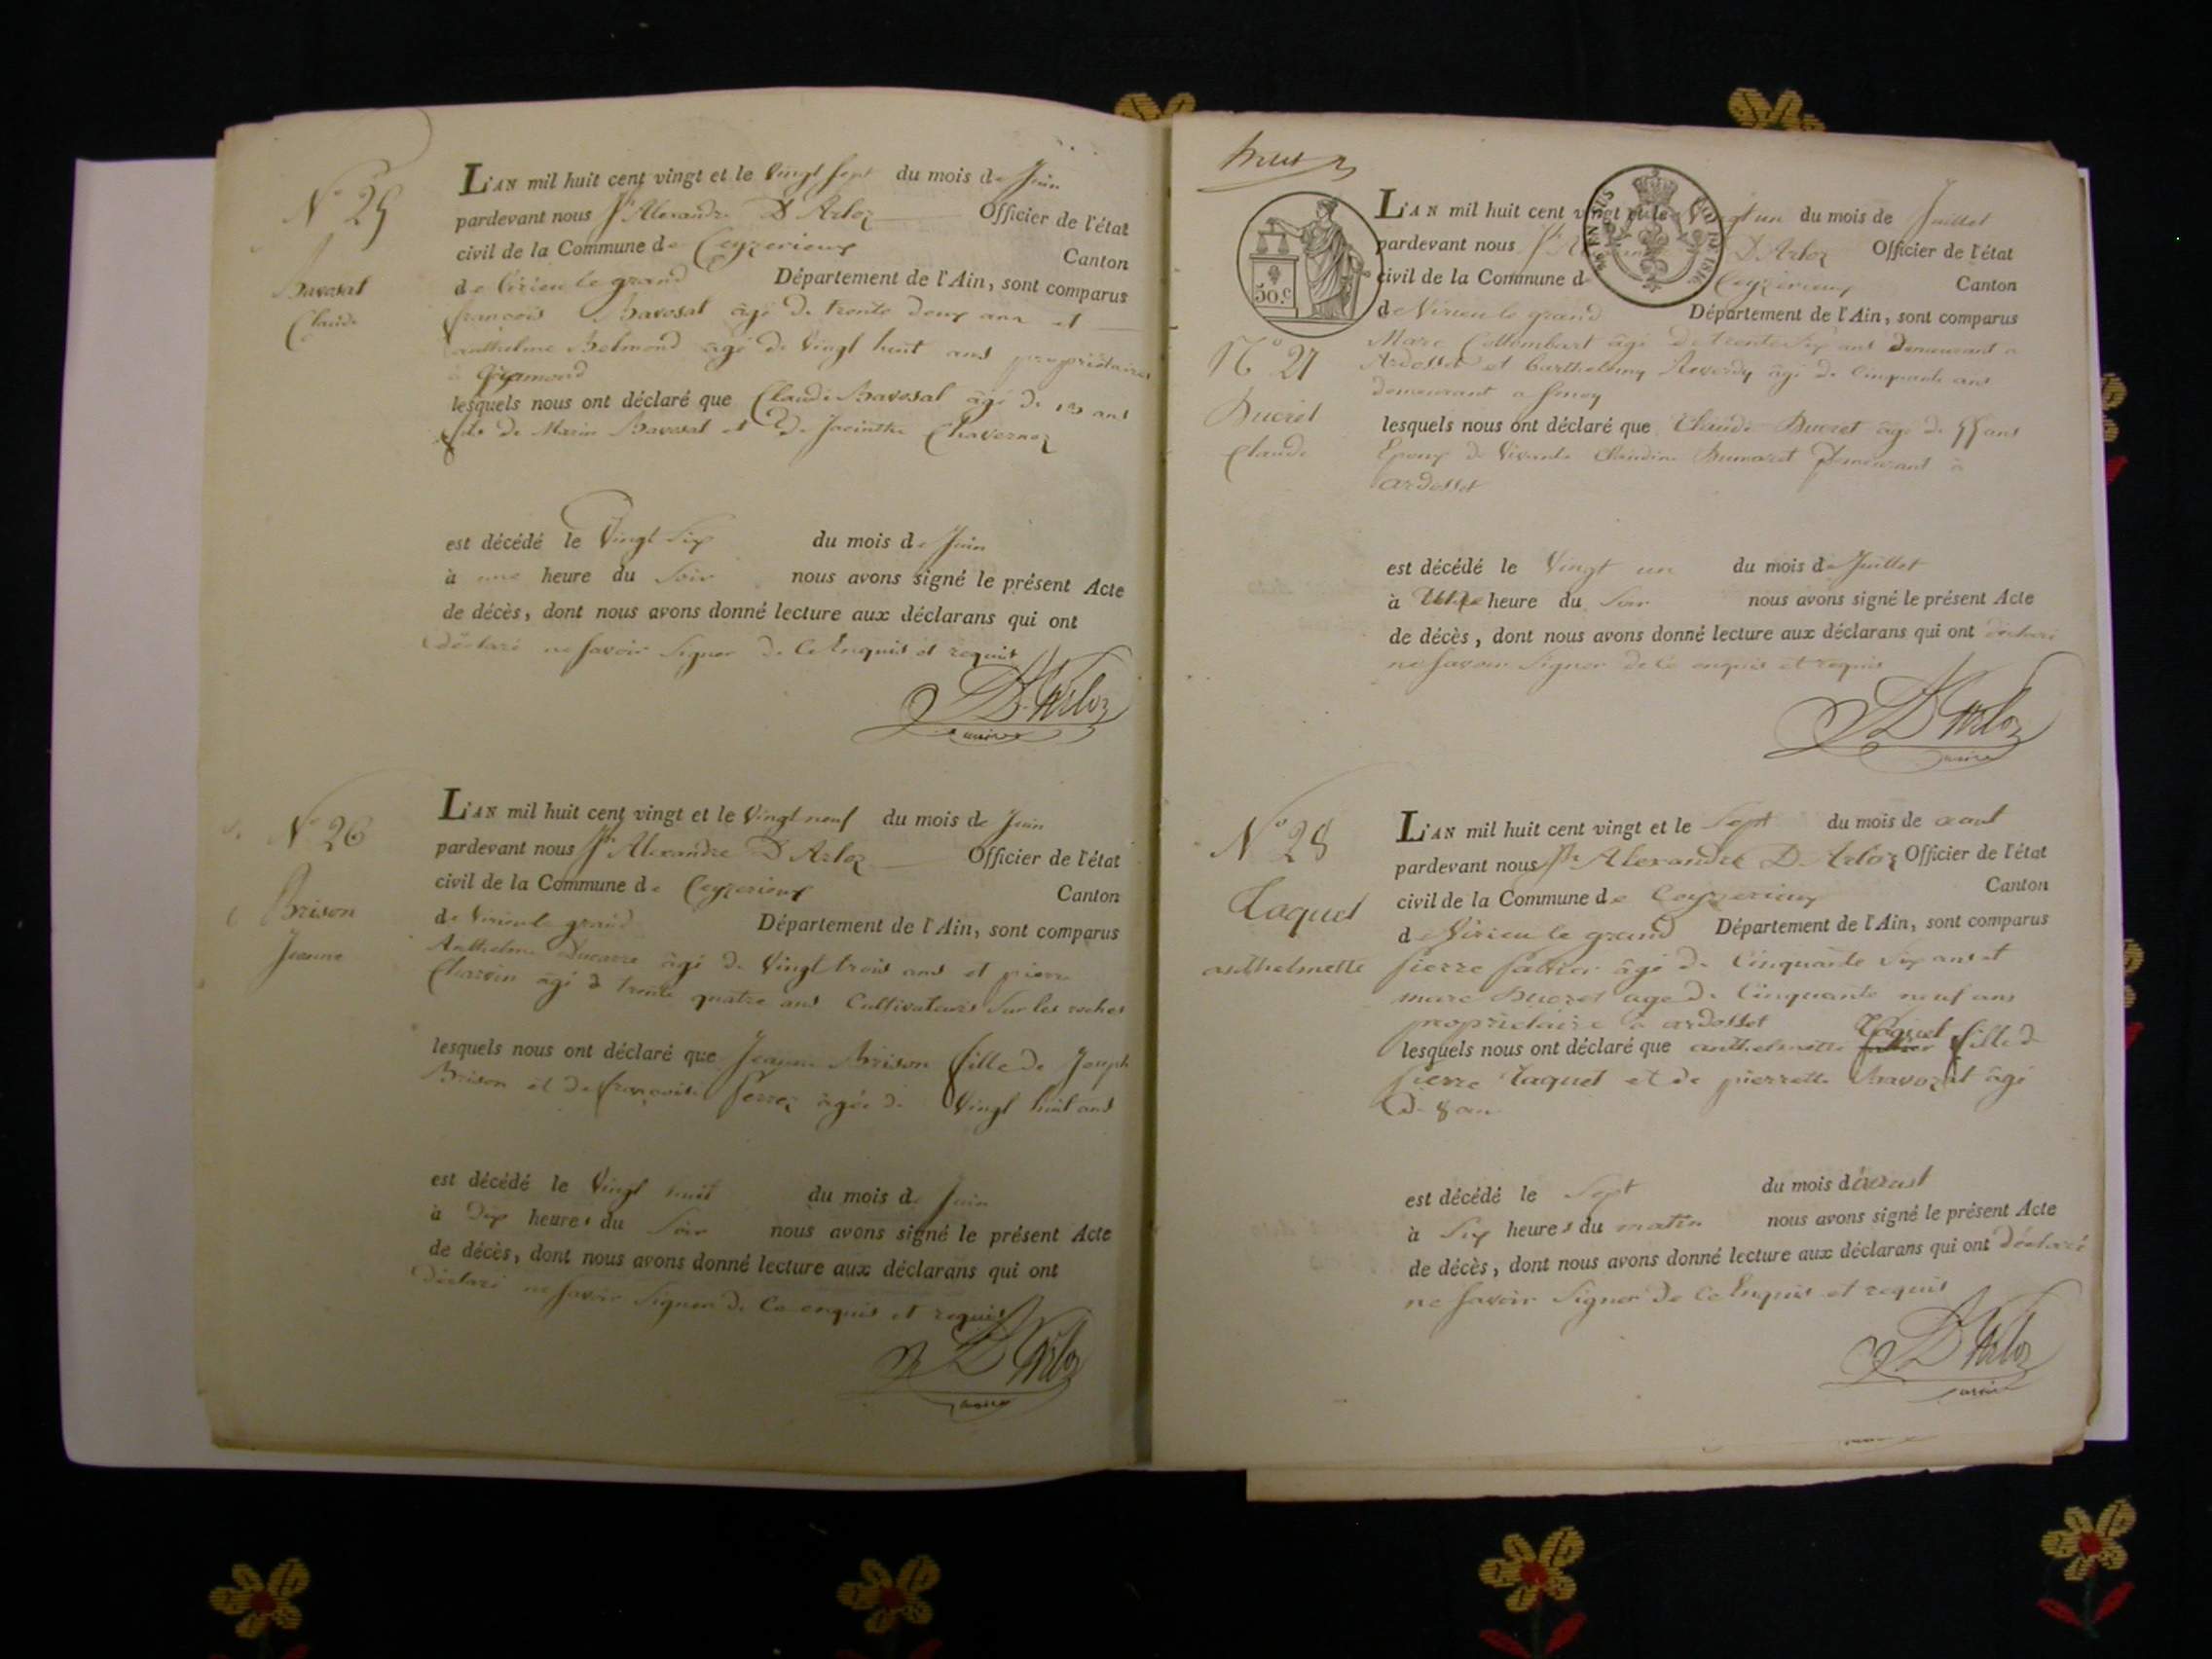 N° 25
Bavosat
Claude
L'AN mil huit cent vingt et le Vingt sept du mois de Juin
pardevant nous Jh Alexandre D'Arloz Officier de l'état
civil de la Commune de Ceyzerieux Canton
de Virieu le grand Département de l'Ain, sont comparus
francois Bavosat âgé de trente deux ans et
anthelme Belmond âgé de Vingt huit ans propriétaires
lesquels nous ont déclaré que Claude Bavosat âgé de ans
fils de Marin Bavosat et de Jacinthe Chavernoz
est décédé le Vingt Six du mois de Juin
à une heure du Soir nous avons signé le présent Acte
de décès, dont nous avons donné lecture aux déclarans qui ont
déclaré ne savoir Signer de Ce Enquis et requis
D'Arloz
maire
N° 26
Brison
Jeanne
L'AN mil huit cent vingt et le Vingt neuf du mois de Juin
pardevant nous Jh Alexandre D'Arloz Officier de l'état
civil de la Commune de Ceyzerieux Canton
de Virieu le grand Département de l'Ain, sont comparus
Anthelme Ducarre âgé de Vingt trois ans et pierre
Charvin âgé de trente quatre ans Cultivateurs Sur les roches
lesquels nous ont déclaré que Jeanne Brison fille de Joseph
Brison et de françoise Perret âgée de Vingt huit ans
est décédé le Vingt huit du mois de Juin
à Dix heures du Soir nous avons signé le présent Acte
de décès, dont nous avons donné lecture aux déclarans qui ont
Déclaré ne savoir Signer de Ce enquis et requis
D'Arloz
maire
50.c
N° 27
Ducret
Claude
L'AN mil huit cent vingt et le Vingt un du mois de Juillet
pardevant nous Jh D'Arloz Officier de l'état
civil de la Commune de Ceyzerieux Canton
de Virieu le grand Département de l'Ain, sont comparus
Marc Collombart âgé de trente Six ans demeurant a
Ardosset et barthelemy Reverdy âgé de Cinquante ans
demeurant a
lesquels nous ont déclaré que Claude Ducret âgé de 55 ans
Epoux de Vivante Claudine Dumarest Demeurant à
ardosset
est décédé le Vingt un du mois de Juillet
à heure du Soir nous avons signé le présent Acte
de décès, dont nous avons donné lecture aux déclarans qui ont déclaré
ne savoir Signer de Ce enquis et requis
D'Arloz
maire
N° 28
Taquet
anthelmette
L'AN mil huit cent vingt et le Sept du mois de aout
pardevant nous Jh Alexandre D'Arloz Officier de l'état
civil de la Commune de Ceyzerieux Canton
de Virieu le grand Département de l'Ain, sont comparus
pierre âgé de Cinquante Six ans et
marc Ducret age de Cinquante neuf ans
propriétaire à ardosset
lesquels nous ont déclaré que anthelmette Taquet fille de
pierre Taquet et de pierrette Bavozat âgé
De 8 ans
est décédé le Sept du mois d'aoust
à Six heures du matin nous avons signé le présent Acte
de décès, dont nous avons donné lecture aux déclarans qui ont Déclaré
ne savoir Signer De Ce Enquis et requis
D'Arloz
maire